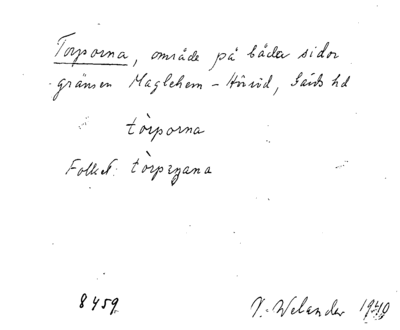 Torporna, område på båda sidor
gränsen Maglehem - Hörröd, Gärds hd
tòrporna
Folket: tòrpεgana
8459. V. Welander 1940